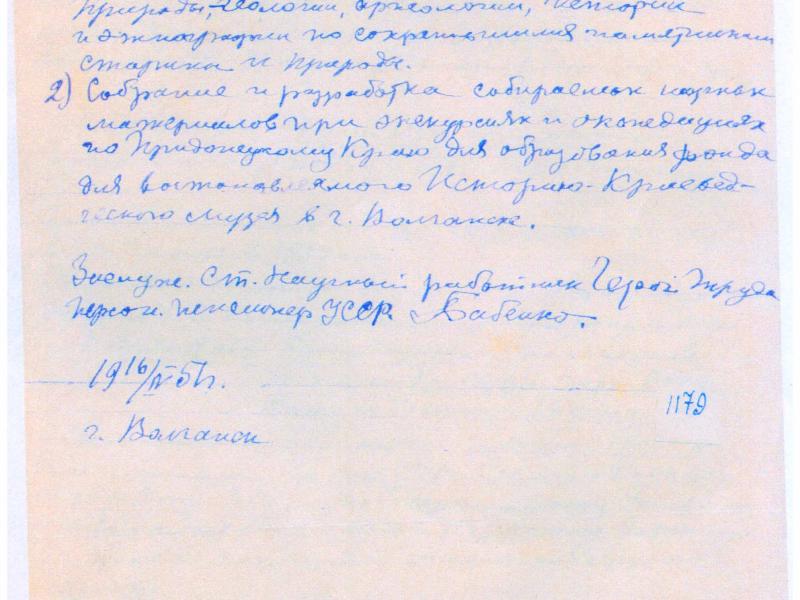 природы, геологии, археологии, истории
и этнографии по сохранившимся памятникам
старины и природы.
2) Собрание и разработка собираемых научных
материалов при экскурсиях и экспедициях
по Придонецкому Краю для образования фонда
для востановляемого Историко-Краевед-
ческого музея в г. Волчанске.
Заслуж. Ст. Научный работник Герой Труда
персон. пенсионер УССР. Бабенко.
19 16/IV 51 г.
1179
г. Волчанск